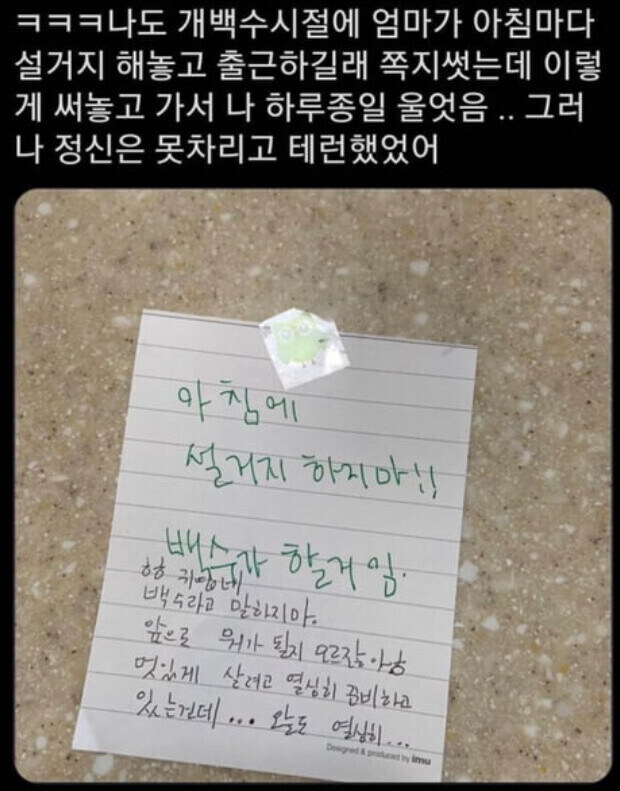 ㅋㅋㅋ나도 개백수시절에 엄마가 아침마다
설거지 해놓고 출근하길래 쪽지썻는데 이렇
게 써놓고 가서 나 하루종일 울엇음 .. 그러
나 정신은 못차리고 테런했었어
아침에
설거지 하지마!!
백수가 할거임.
ㅎㅎ 귀엽네
백수라고 말하지마.
앞으로 뭐가 될지 모르잖아ㅎ
멋있게 살려고 열심히 준비하고
있는건데... 오늘도 열심히...
Designed & produced by imu